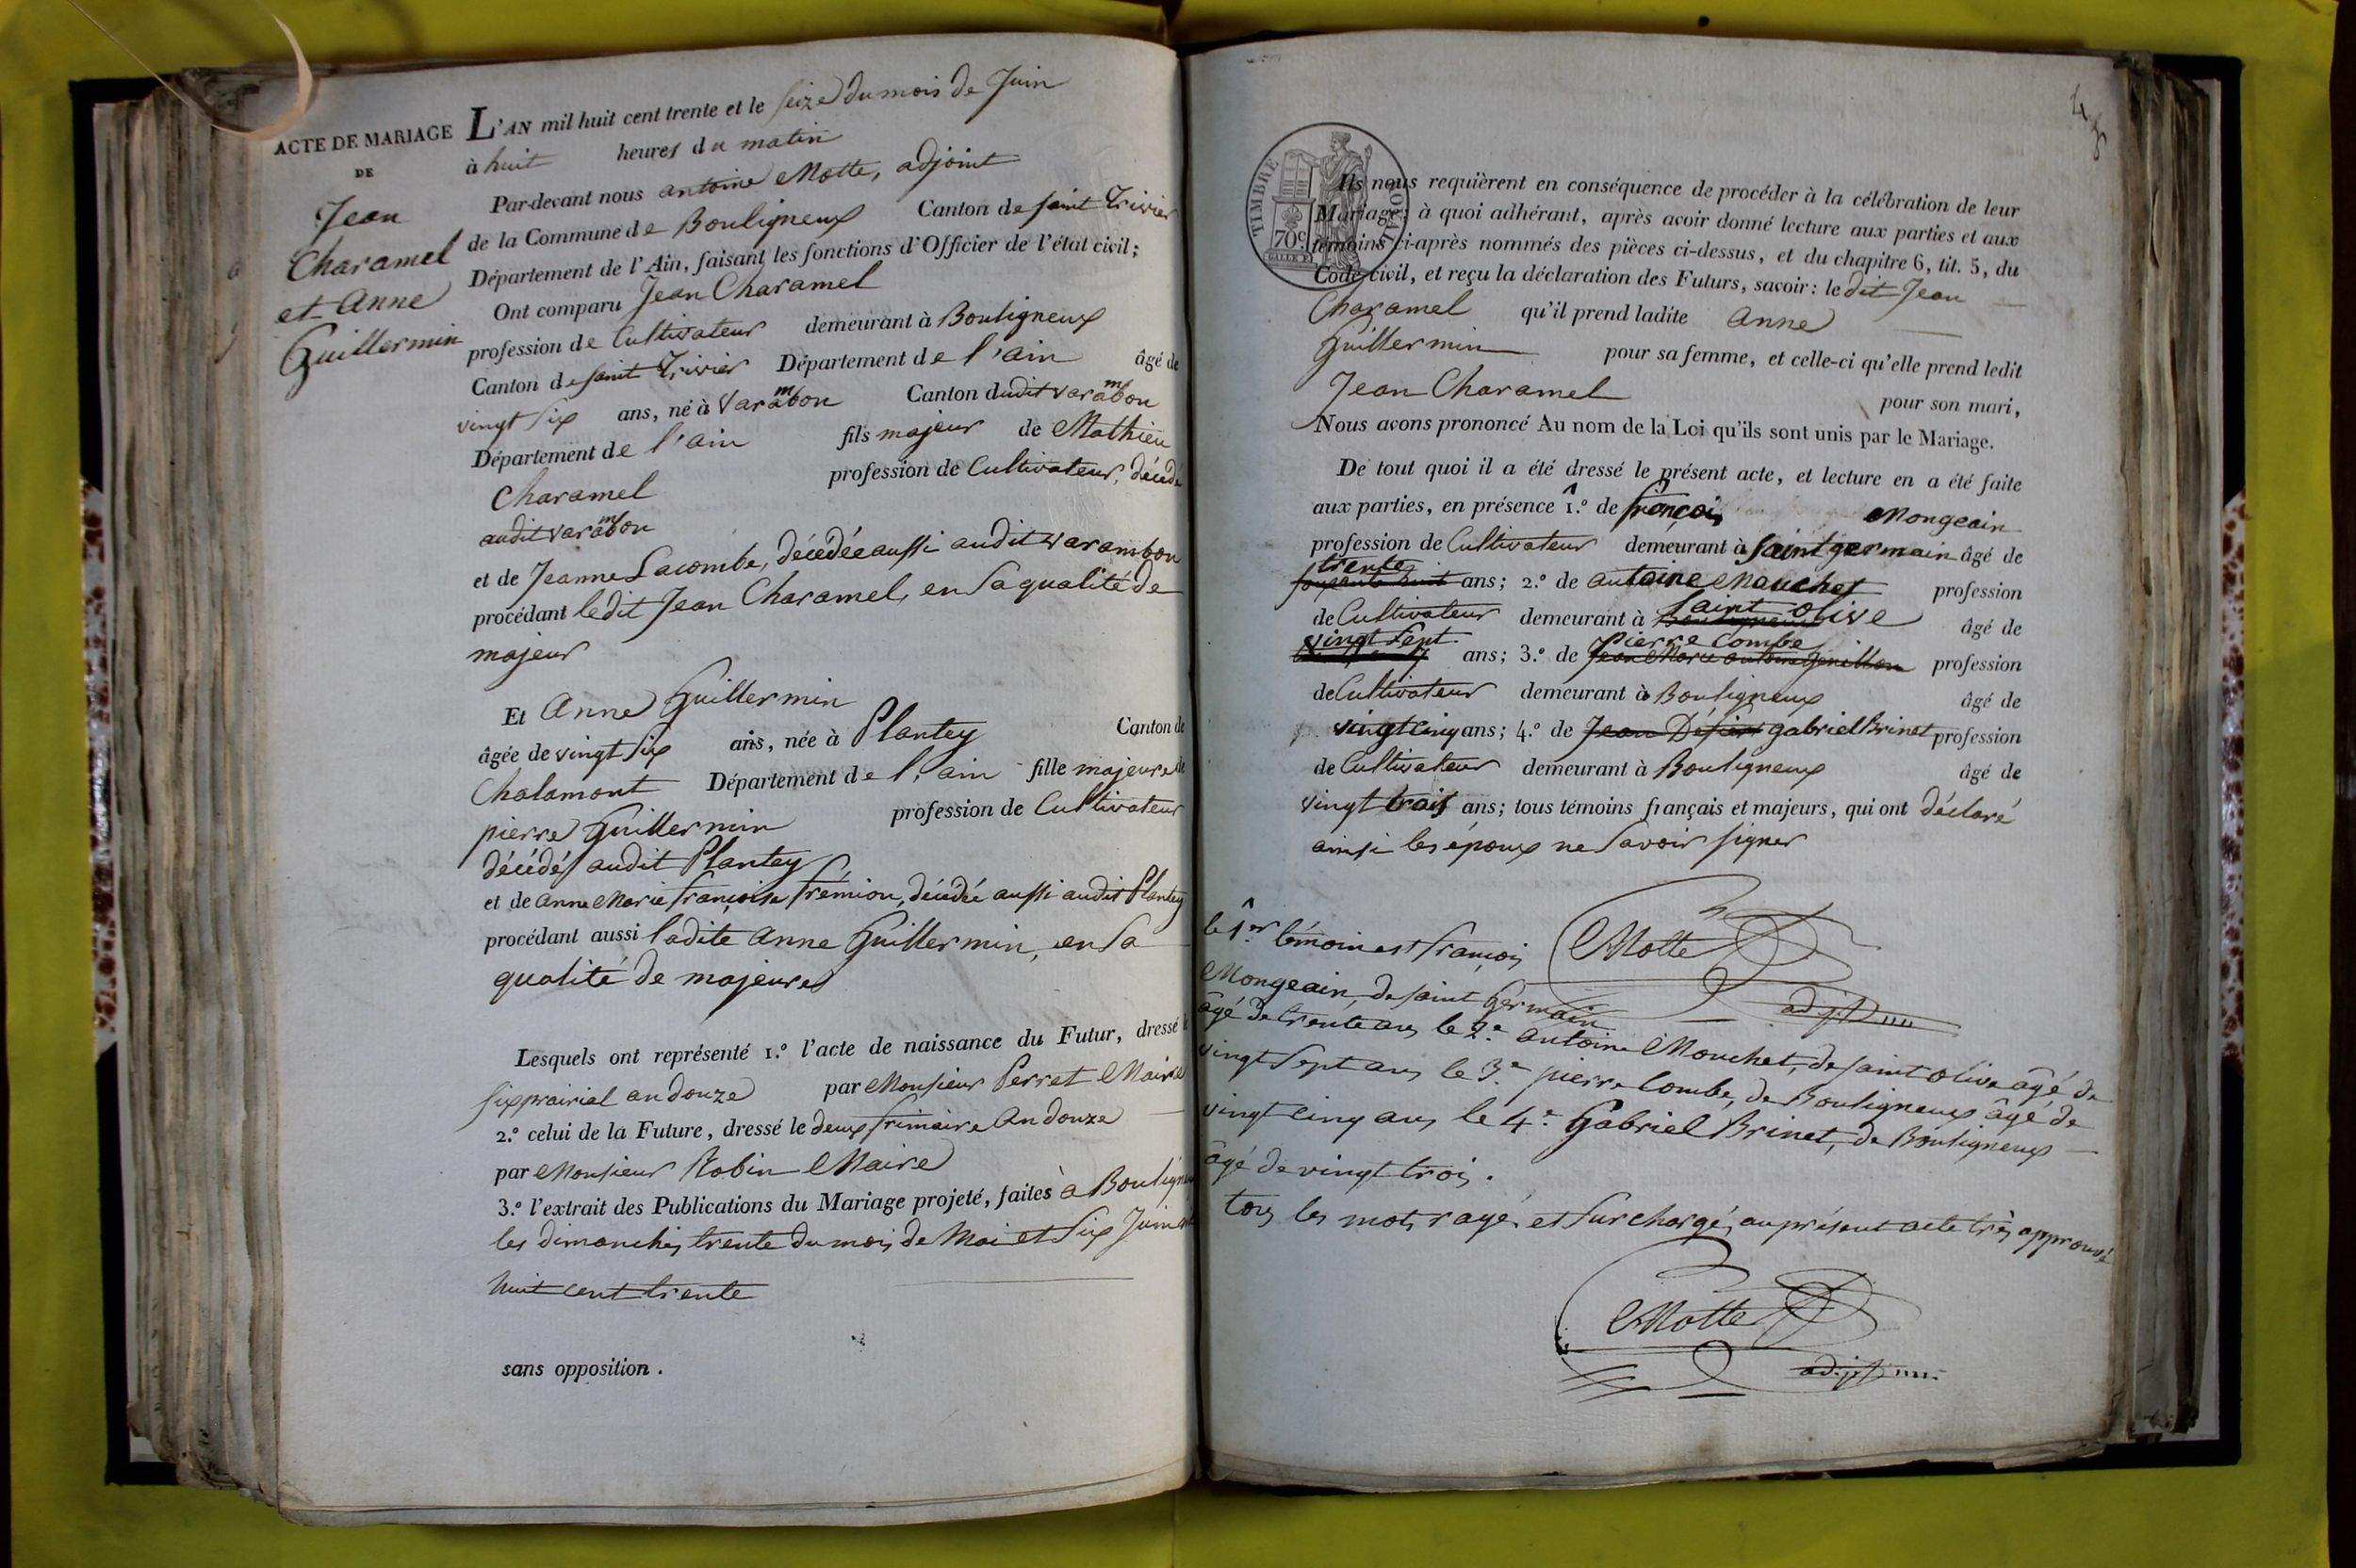 ACTE DE MARIAGE
DE
Jean
Charamel
et Anne
Guillermin
L'AN mil huit cent trente et le seize du mois de Juin
à huit heures du matin
Par-devant nous antoine Motte, adjoint
de la Commune de Bouligneux Canton de saint Trivier
Département de l'Ain, faisant les fonctions d'Officier de l'état civil;
Ont comparu Jean Charamel
profession de Cultivateur demeurant à Bouligneux
Canton de saint Trivier Département de l'ain âgé de
vingt six ans, né à Varambon Canton dudit varambon
Département de l'ain fils majeur de Mathieu
Charamel profession de Cultivateur, décédé
audit varambon
et de Jeanne Lacombe, décédée aussi audit varambon
procédant ledit Jean Charamel, en sa qualité de
majeur
Et Anne Guillermin
âgée de vingt six ans, née à Plantey Canton de
Chalamont Département de l'ain fille majeure de
pierre Guillermin profession de Cultivateur
décédé audit Plantey
et de anne Marie françoise frémion, décédée aussi audit Plantey
procédant aussi ladite Anne Guillermin, en sa
qualité de majeure
Lesquels ont représenté 1.º l'acte de naissance du Futur, dressé le
six prairial an douze par Monsieur Perret Maire
2.º celui de la Future, dressé le deux frimaire An douze
par Monsieur Robin Maire
3.º l'extrait des Publications du Mariage projeté, faites à Bouligneux
les dimanches trente du mois de Mai et six Juin mil
huit cent trente
sans opposition.
TIMBRE ROYAL
70 c
Ils nous requièrent en conséquence de procéder à la célébration de leur
Mariage; à quoi adhérant, après avoir donné lecture aux parties et aux
témoins ci-après nommés des pièces ci-dessus, et du chapitre 6, tit. 5, du
Code civil, et reçu la déclaration des Futurs, savoir: le dit Jean
Charamel qu'il prend ladite anne
Guillermin pour sa femme, et celle-ci qu'elle prend ledit
Jean Charamel pour son mari,
Nous avons prononcé Au nom de la Loi qu'ils sont unis par le Mariage.
De tout quoi il a été dressé le présent acte, et lecture en a été faite
aux parties, en présence 1.º de françois Mongeain
profession de Cultivateur demeurant à saint germain âgé de
trente ans; 2.º de antoine Mouchet profession
de Cultivateur demeurant à saint olive âgé de
vingt sept ans; 3.º de pierre Combe profession
de Cultivateur demeurant à Bouligneux âgé de
vingt cinq ans; 4.º de gabriel Brinet profession
de Cultivateur demeurant à Bouligneux âgé de
vingt trois ans; tous témoins français et majeurs, qui ont déclaré
ainsi les époux ne savoir signer
Motte
adjt
le 1er témoin est françois
Mongeain, de saint Germain
âgé de trente ans, le 2e antoine Mouchet, de saint olive âgé de
vingt sept ans, le 3e pierre Combe, de Bouligneux âgé de
vingt cinq ans, le 4e Gabriel Brinet, de Bouligneux
âgé de vingt trois.
tous les mots rayés et surchargés au présent acte très approuvé
Motte
adjt